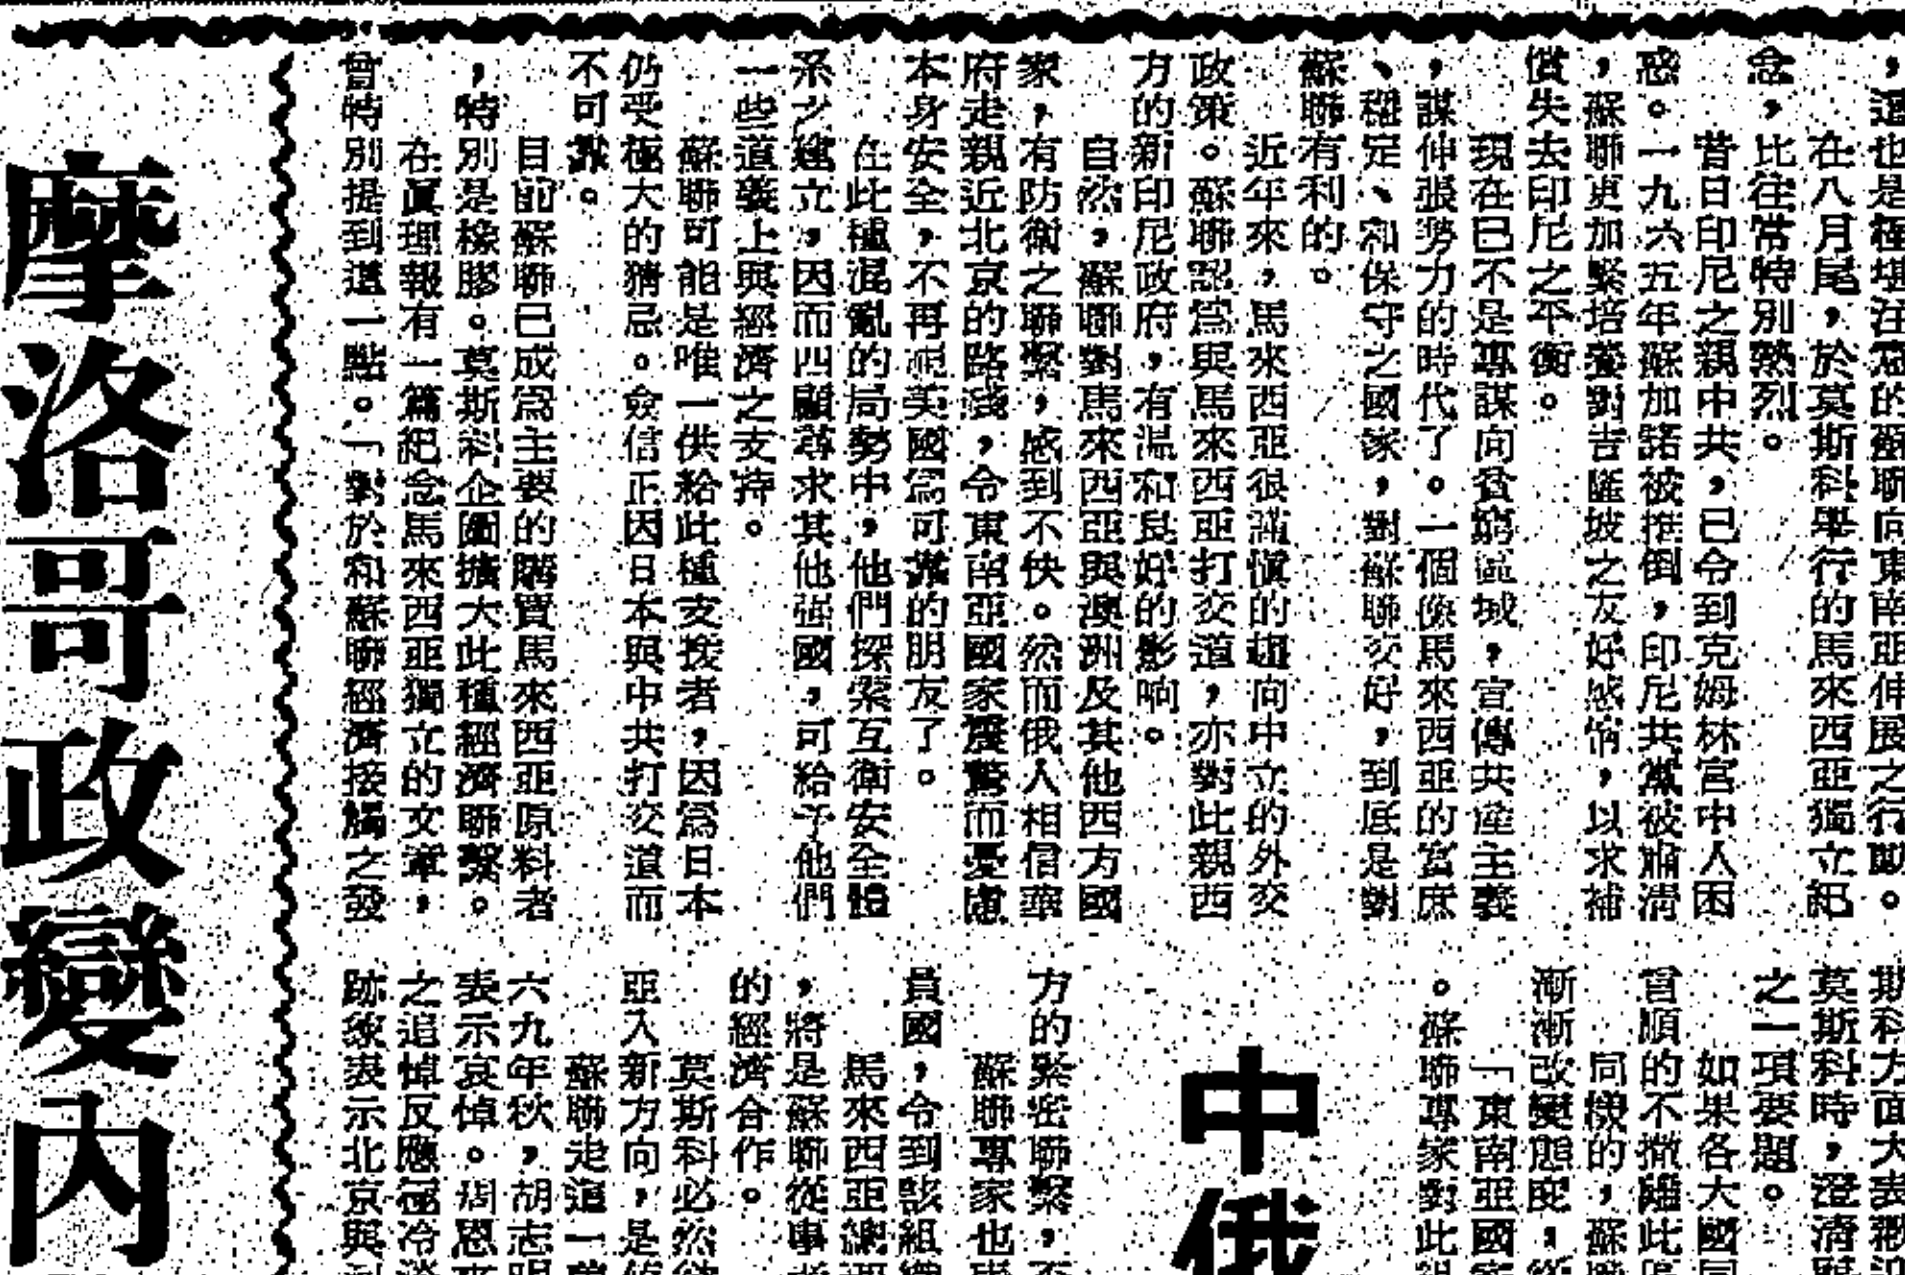 ，這也是極堪注意的蘇聯向東南亞伸展之行動。
在八月尾，於莫斯科舉行的馬來西亞獨立紀
念，比往常特別熱烈。
昔日印尼之親中共，已令到克姆林宮中人困
惑。一九六五年蘇加諾被推倒，印尼共黨被肅清
，蘇聯更加緊培養對吉隆坡之友好感情，以求補
償失去印尼之平衡。
現在已不是專謀向貧窮區域，宣傳共產主義
，謀伸張勢力的時代了。一個像馬來西亞的富庶
、穩定、和保守之國家，對蘇聯交好，到底是對
蘇聯有利的。
近年來，馬來西亞很謹慎的趨向中立的外交
政策。蘇聯認為與馬來西亞打交道，亦對此親西
方的新印尼政府，有溫和良好的影响。
自然，蘇聯對馬來西亞與澳洲及其他西方國
家，有防衛之聯繫，感到不快。然而俄人相信華
府走親近北京的路綫，令東南亞國家震驚而憂慮
本身安全，不再視美國為可靠的朋友了。
在此種混亂的局勢中，他們探索互衛安全體
系之建立，因而四顧尋求其他強國，可給予他們
一些道義上與經濟之支持。
蘇聯可能是唯一供給此種支援者，因為日本
仍受極大的猜忌。僉信正因日本與中共打交道而
不可靠。
目前蘇聯已成為主要的購買馬來西亞原料者
，特別是橡膠。莫斯科企圖擴大此種經濟聯繫。
在眞理報有一篇紀念馬來西亞獨立的文章，
曾特別提到這一點。「對於和蘇聯經濟接觸之發
斯科方面大表歡迎
莫斯科時，澄清
之一項要題。
如果各大國同
當順的不撤離此
同樣的，蘇聯
漸漸改變態度，從
「東南亞國家
。蘇聯專家對此組
中俄
方的緊密聯繫，否
蘇聯專家也
員國，令到該組織
馬來西亞總理
，將是蘇聯從事
的經濟合作。
莫斯科必然從
亞入新方向，是
蘇聯走這一
六九年秋，胡志明
表示哀悼。周恩來
之追悼反應極冷淡
跡象表示北京與
摩洛哥政變內